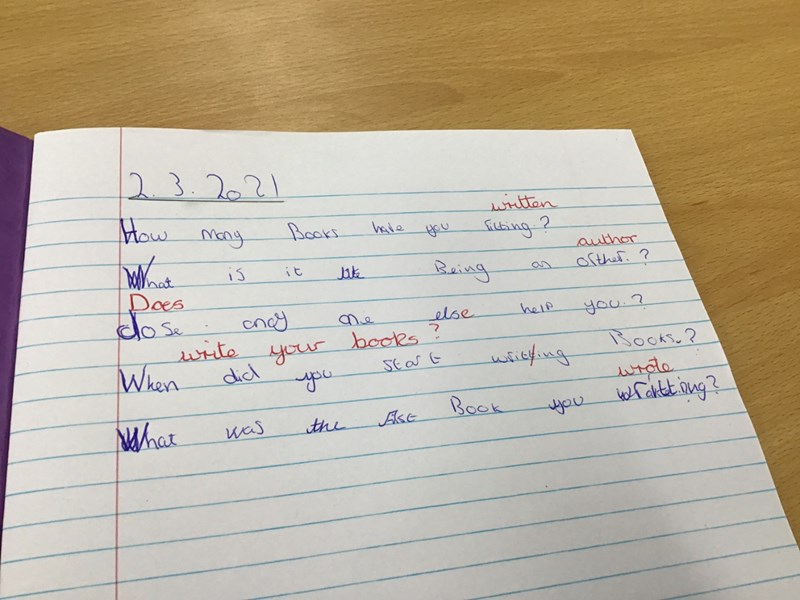 2.3.2021
written
How many Books have you riting?
author
What is it like Being an orther.?
Does
dose oney one else help you.?
write your books?
When did you start writting Books.?
wrote
What was the fist Book you